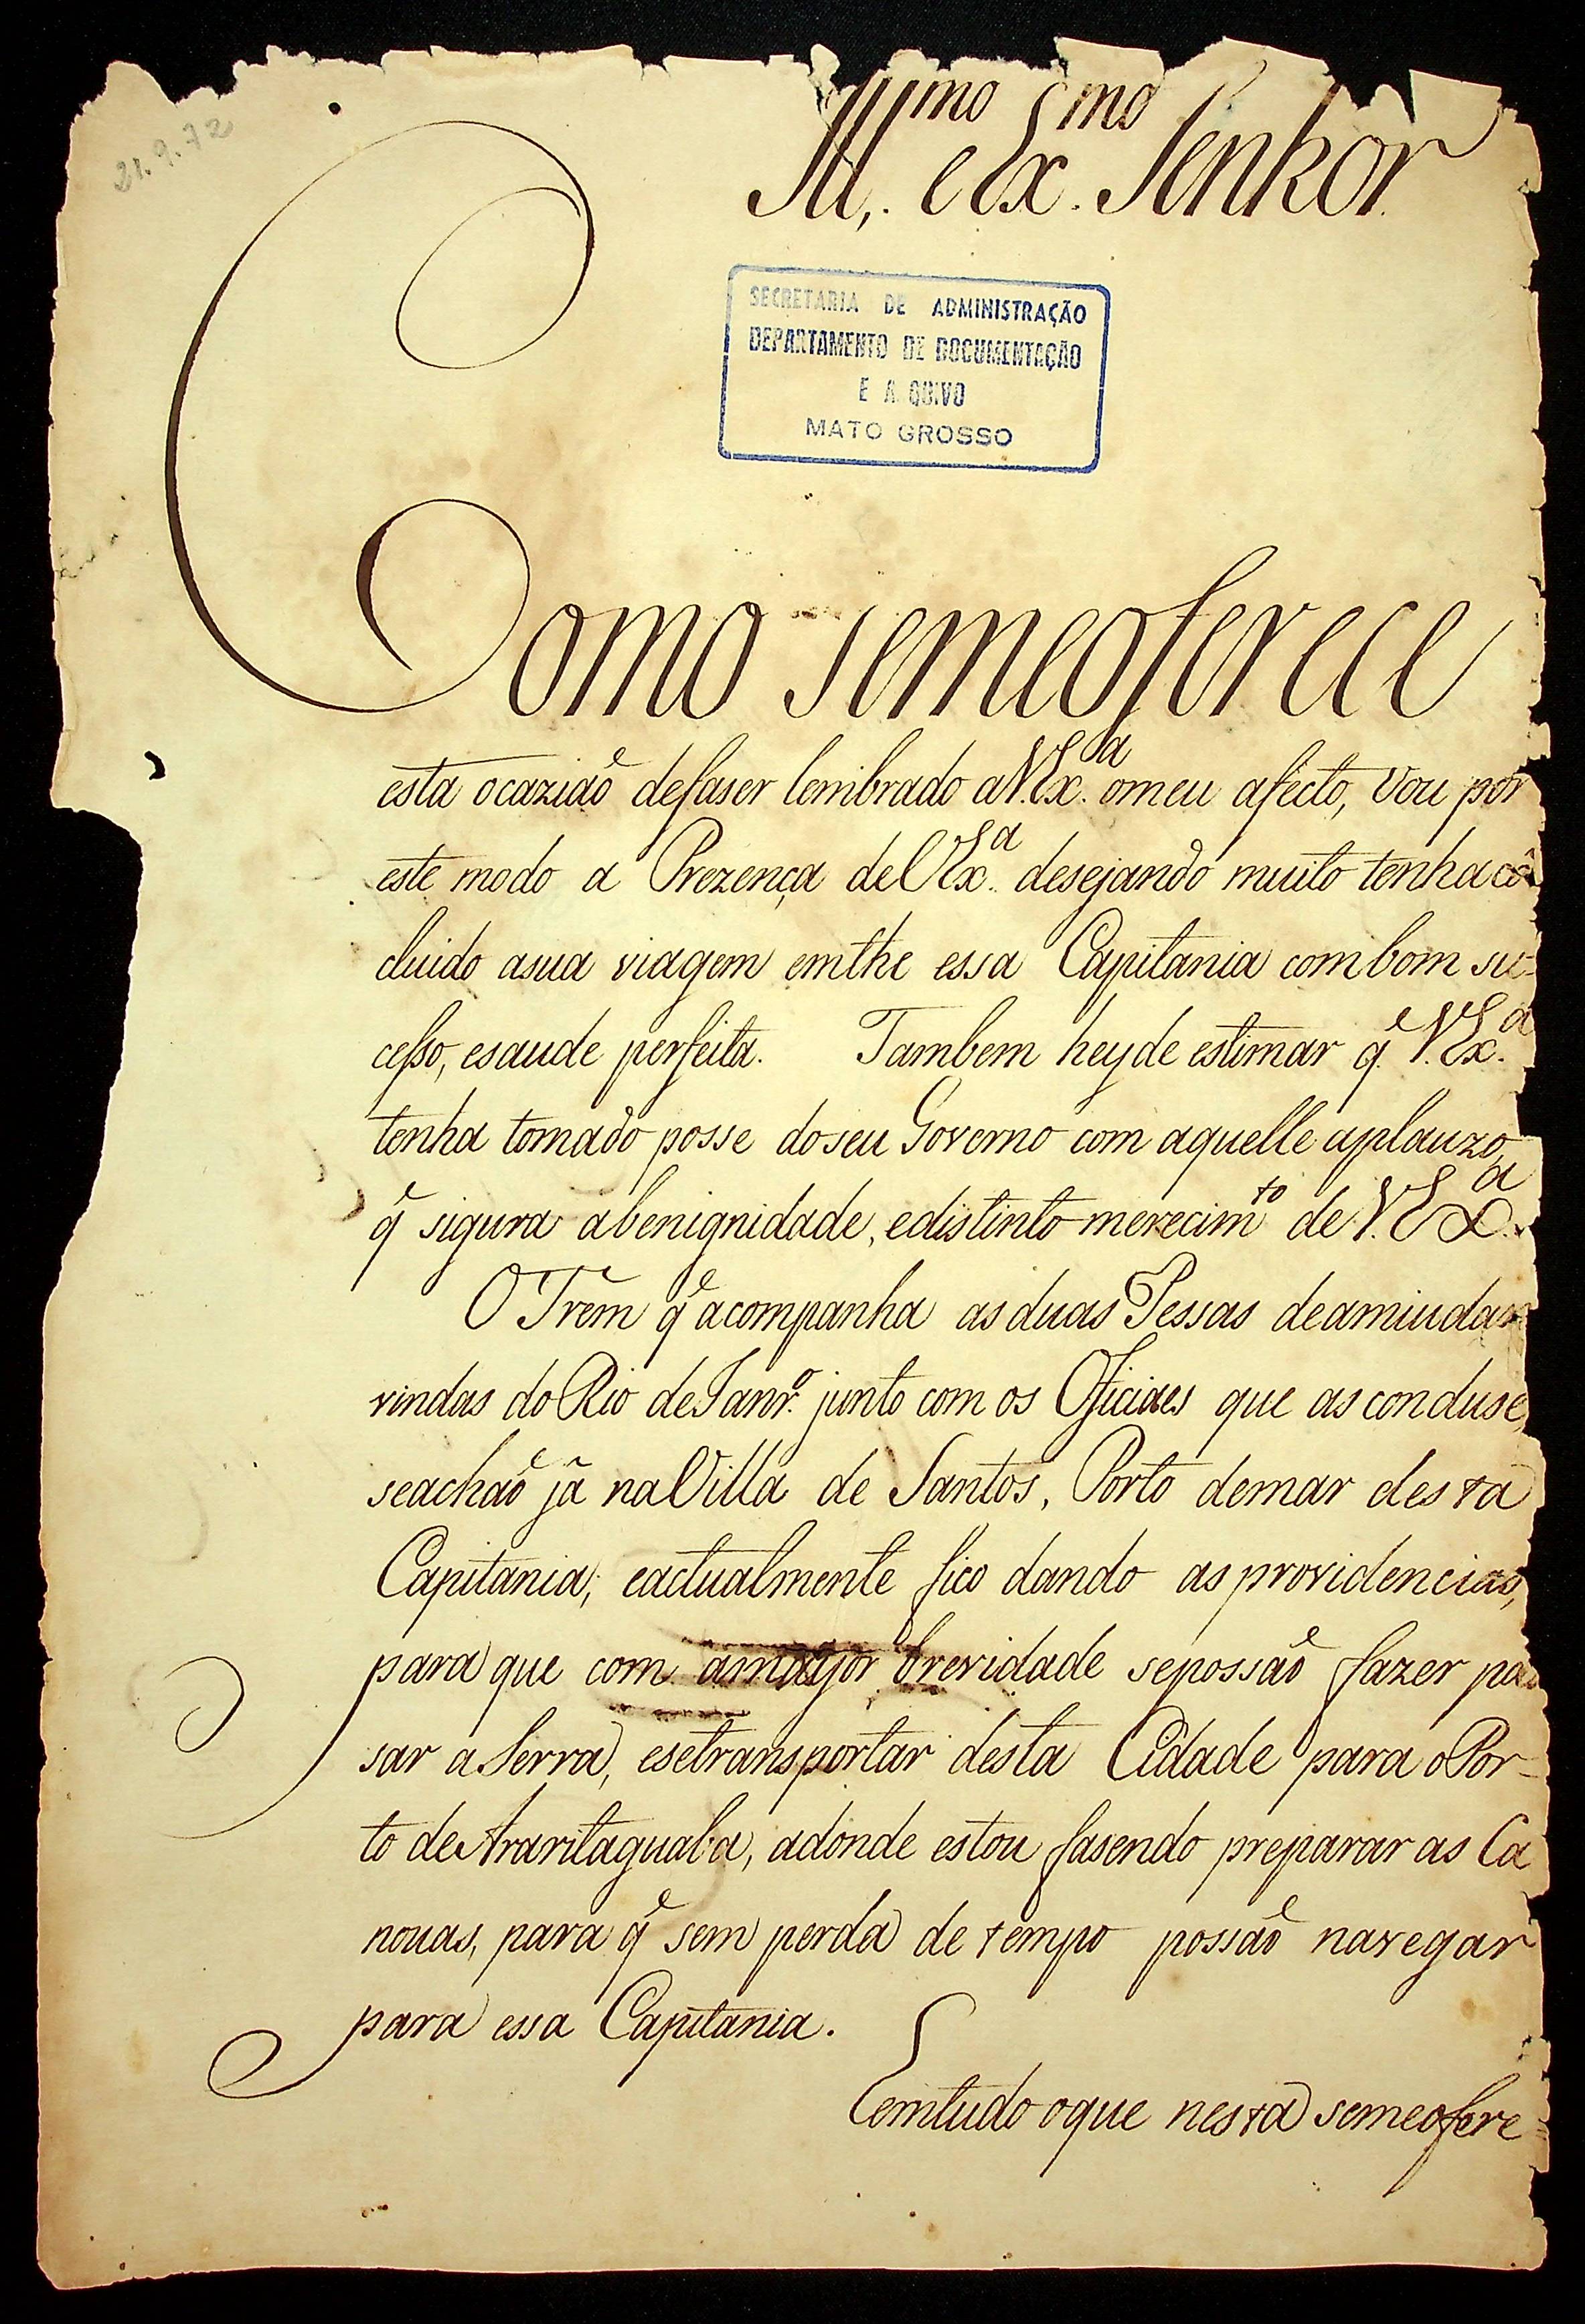 21.9.72
Ill.mo e Ex.mo Senhor
SECRETARIA DE ADMINISTRAÇÃO
DEPARTAMENTO DE DOCUMENTAÇÃO
E A QUIVO
MATO GROSSO
Como semeoferece
esta ocazião defaser lembrado aV.Ex.a omeu afecto, vou por
este modo a Prezença deVEx.a desejando muito tenha cõ
cluido asua viagem emthe essa Capitania combom su-
cesso, esaude perfeita. Tambem heyde estimar q̃ V.Ex.a
tenha tomado posse doseu Governo com aquelle aplauzo,
q̃ sigura abenignidade, edistinto merecim.to de V.Ex.a
O Trem q̃ acompanha as duas Pessas deamiudar
vindas do Rio deJanr.o junto com os Oficiaes que as conduse,
seachão já naVilla de Santos, Porto demar desta
Capitania, eactualmente fico dando as providencias,
para que com amayor brevidade sepossão fazer pas
sar aSerra, esetransportar desta Cidade para oPor-
to deAraritaguaba, adonde estou fasendo preparar as Ca
nouas, para q̃ sem perda de tempo possão navegar
para essa Capitania.
Eemtudo oque nesta semeofere=